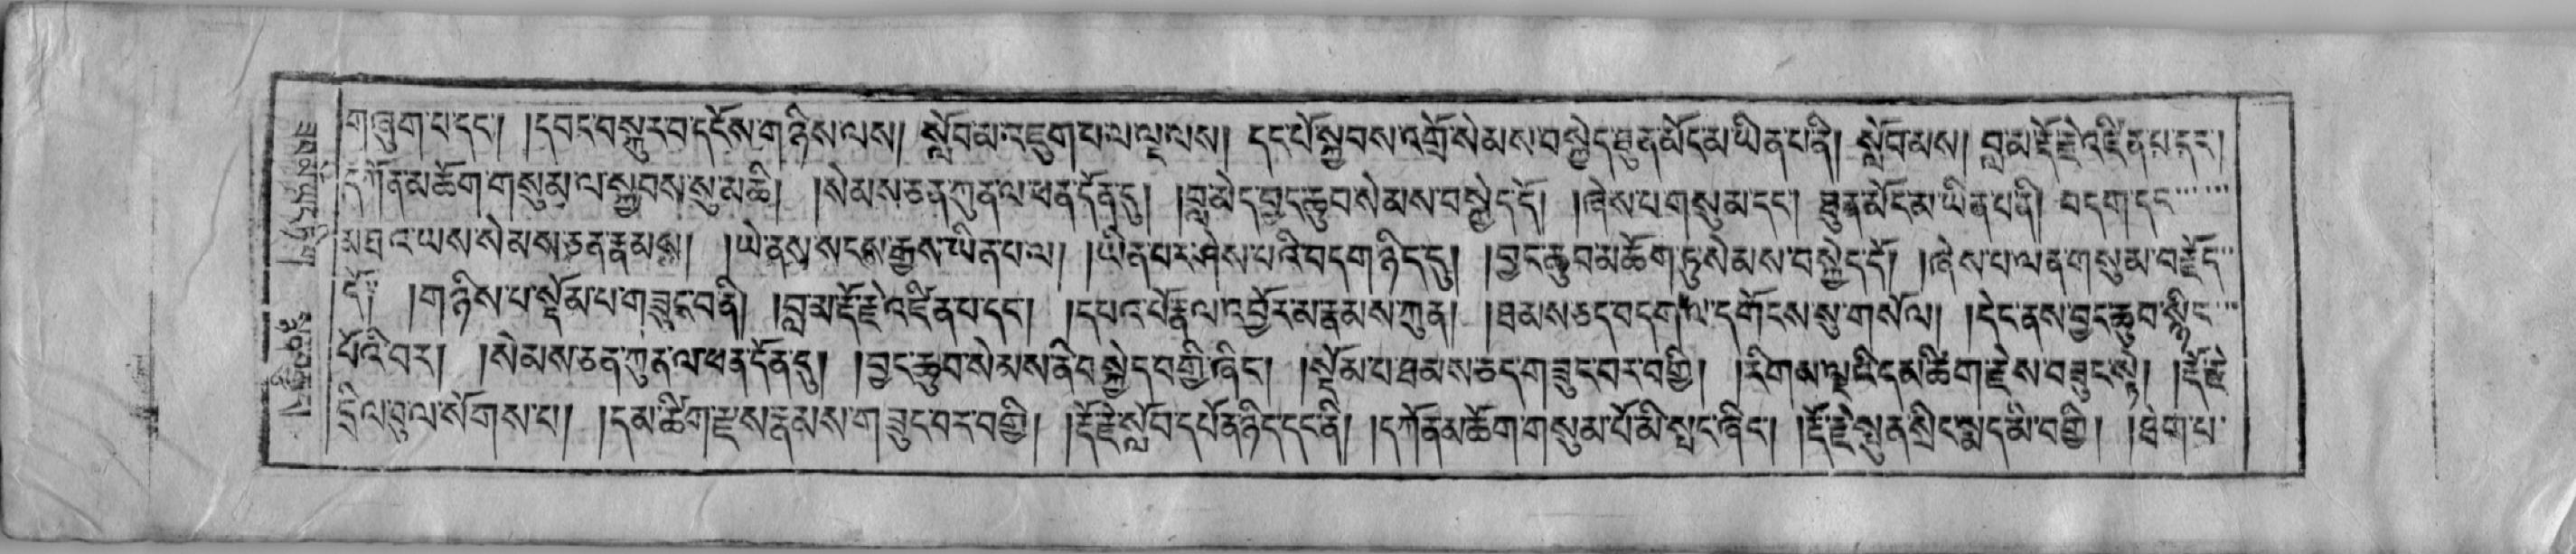 གཞུག་པ་དང་། །དབང་བསྐུར་བ་དངོས་གཉིས་ལས། སློབ་མ་འཇུག་པ་ལ་ལྔ་ལས། དང་པོ་སྐྱབས་འགྲོ་སེམས་བསྐྱེད་ཐུན་མོང་མ་ཡིན་པ་ནི། སློབ་མས། བླ་མ་རྡོ་རྗེ་འཛིན་པ་དང་།
དཀོན་མཆོག་གསུམ་ལ་སྐྱབས་སུ་མཆི། །སེམས་ཅན་ཀུན་ལ་ཕན་དོན་དུ། །བླ་མེད་བྱང་ཆུབ་སེམས་བསྐྱེད་དོ། །ཞེས་པ་གསུམ་དང་། ཐུན་མོང་མ་ཡིན་པ་ནི། བདག་དང་
མཐའ་ཡས་སེམས་ཅན་རྣམས། །ཡེ་ནས་སངས་རྒྱས་ཡིན་པ་ལ། །ཡིན་པར་ཤེས་པའི་བདག་ཉིད་དུ། །བྱང་ཆུབ་མཆོག་ཏུ་སེམས་བསྐྱེད་དོ། །ཞེས་པ་ལན་གསུམ་བརྗོད་
དོ། །གཉིས་པ་སྡོམ་པ་གཟུང་བ་ནི། །བླ་མ་རྡོ་རྗེ་འཛིན་པ་དང་། །དཔའ་བོ་རྣལ་འབྱོར་མ་རྣམས་ཀུན། །ཐམས་ཅད་བདག་ལ་དགོངས་སུ་གསོལ། །དེང་ནས་བྱང་ཆུབ་སྙིང་
པོའི་བར། །སེམས་ཅན་ཀུན་ལ་ཕན་དོན་དུ། །བྱང་ཆུབ་སེམས་ནི་བསྐྱེད་བགྱི་ཞིང་། །སྡོམ་པ་ཐམས་ཅད་གཟུང་བར་བགྱི། །རིགས་ལྔའི་དམ་ཚིག་རྗེས་བཟུང་སྟེ། །རྡོ་རྗེ་
དྲིལ་བུ་ལ་སོགས་པ། །དམ་ཚིག་རྫས་རྣམས་གཟུང་བར་བགྱི། །རྡོ་རྗེ་སློབ་དཔོན་ཉིད་དང་ནི། །དཀོན་མཆོག་གསུམ་པོ་མི་སྤང་ཞིང་། །རྡོ་རྗེ་སྤུན་སྲིང་སྨད་མི་བགྱི། །ཐེག་པ་